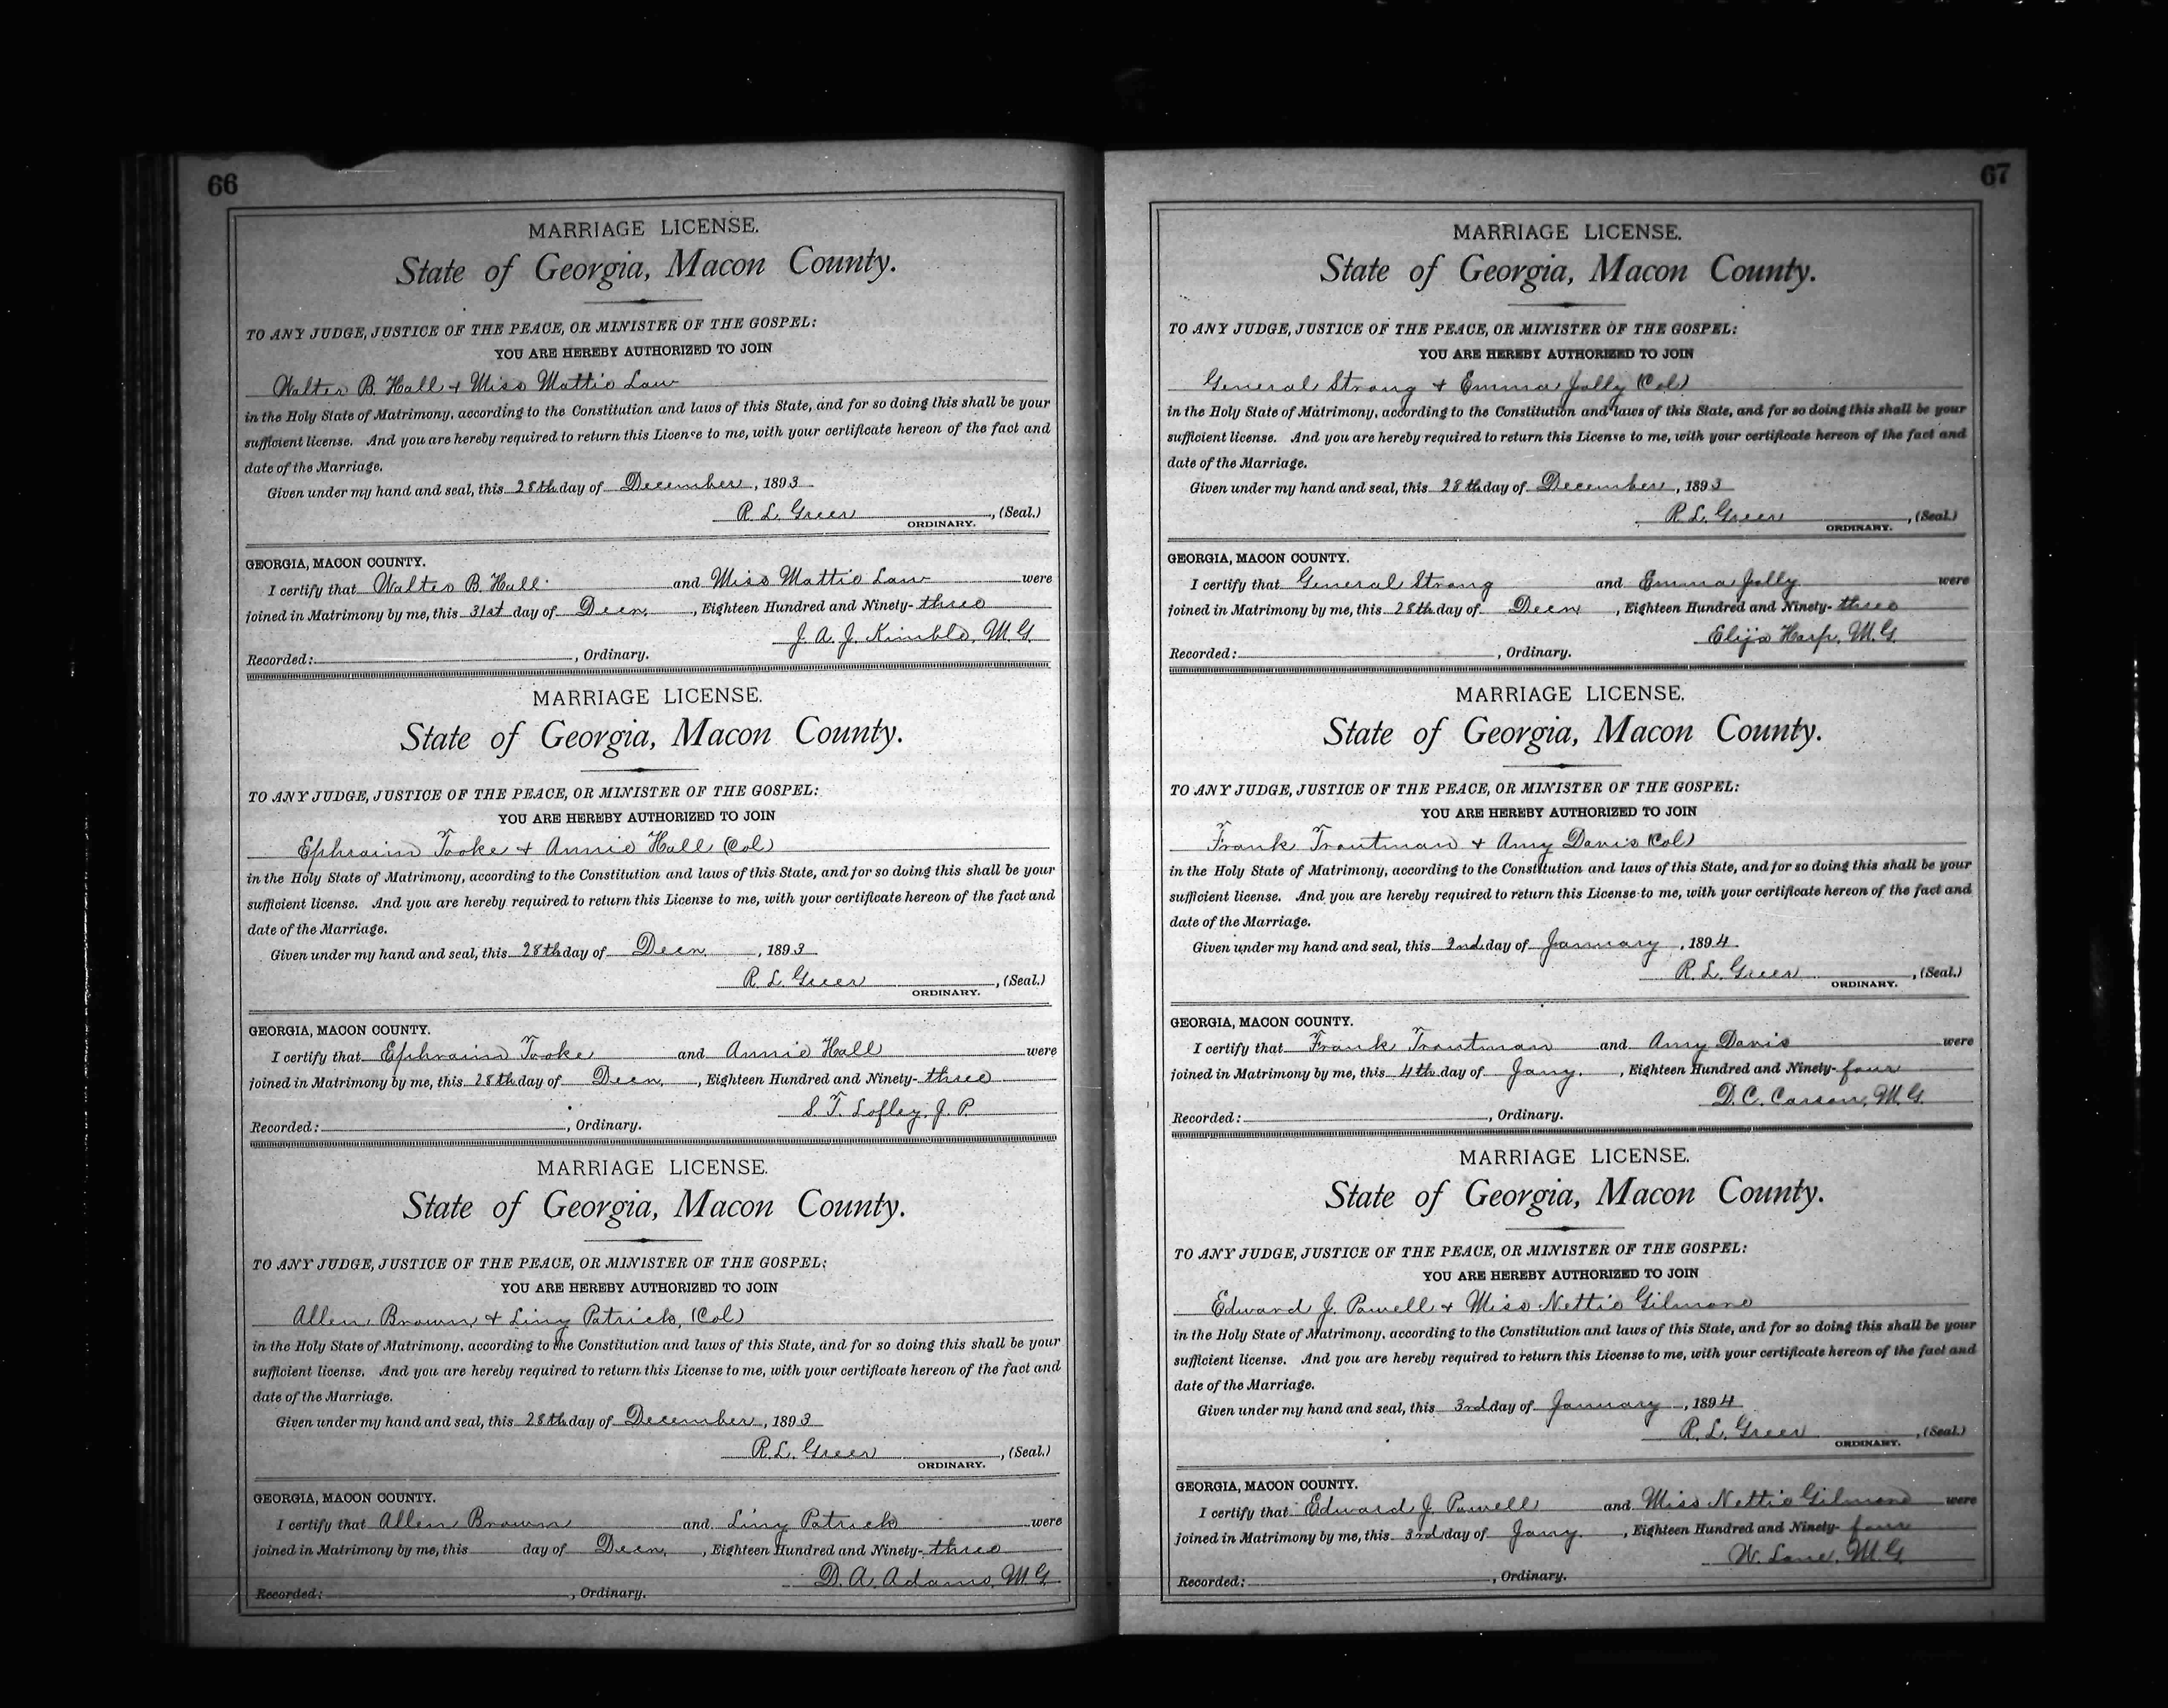 66
MARRIAGE LICENSE.
State of Georgia, Macon County.
TO ANY JUDGE, JUSTICE OF THE PEACE, OR MINISTER OF THE GOSPEL:
YOU ARE HEREBY AUTHORIZED TO JOIN
Walter B. Hall & Miss Mattie Law
in the Holy State of Matrimony, according to the Constitution and laws of this State, and for so doing this shall be your
sufficient license. And you are hereby required to return this License to me, with your certificate hereon of the fact and
date of the Marriage.
Given under my hand and seal, this 28th day of December, 1893
R. L. Greer, (Seal.)
ORDINARY.
GEORGIA, MACON COUNTY.
I certify that Walter B. Hall and Miss Mattie Law were
joined in Matrimony by me, this 31st day of Decr., Eighteen Hundred and Ninety-three
J. A. J. Kimble, M.G.
Recorded: , Ordinary.
MARRIAGE LICENSE.
State of Georgia, Macon County.
TO ANY JUDGE, JUSTICE OF THE PEACE, OR MINISTER OF THE GOSPEL:
YOU ARE HEREBY AUTHORIZED TO JOIN
Ephraim Tooke & Annie Hall (Col)
in the Holy State of Matrimony, according to the Constitution and laws of this State, and for so doing this shall be your
sufficient license. And you are hereby required to return this License to me, with your certificate hereon of the fact and
date of the Marriage.
Given under my hand and seal, this 28th day of Decr., 1893
R. L. Greer, (Seal.)
ORDINARY.
GEORGIA, MACON COUNTY.
I certify that Ephraim Tooke and Annie Hall were
joined in Matrimony by me, this 28th day of Decr., Eighteen Hundred and Ninety-three
S. T. Lofley, J. P.
Recorded: , Ordinary.
MARRIAGE LICENSE.
State of Georgia, Macon County.
TO ANY JUDGE, JUSTICE OF THE PEACE, OR MINISTER OF THE GOSPEL:
YOU ARE HEREBY AUTHORIZED TO JOIN
Allen Brown & Liny Patrick, (Col)
in the Holy State of Matrimony, according to the Constitution and laws of this State, and for so doing this shall be your
sufficient license. And you are hereby required to return this License to me, with your certificate hereon of the fact and
date of the Marriage.
Given under my hand and seal, this 28th day of December, 1893
R. L. Greer, (Seal.)
ORDINARY.
GEORGIA, MACON COUNTY.
I certify that Allen Brown and Liny Patrick were
joined in Matrimony by me, this day of Decr., Eighteen Hundred and Ninety-three
D. A. Adams, M.G.
Recorded: , Ordinary.
67
MARRIAGE LICENSE.
State of Georgia, Macon County.
TO ANY JUDGE, JUSTICE OF THE PEACE, OR MINISTER OF THE GOSPEL:
YOU ARE HEREBY AUTHORIZED TO JOIN
General Strong & Emma Jolly (Col)
in the Holy State of Matrimony, according to the Constitution and laws of this State, and for so doing this shall be your
sufficient license. And you are hereby required to return this License to me, with your certificate hereon of the fact and
date of the Marriage.
Given under my hand and seal, this 28th day of December, 1893
R. L. Greer, (Seal.)
ORDINARY.
GEORGIA, MACON COUNTY.
I certify that General Strong and Emma Jolly were
joined in Matrimony by me, this 28th day of Decr, Eighteen Hundred and Ninety-three
Elija Harp, M.G.
Recorded: , Ordinary.
MARRIAGE LICENSE.
State of Georgia, Macon County.
TO ANY JUDGE, JUSTICE OF THE PEACE, OR MINISTER OF THE GOSPEL:
YOU ARE HEREBY AUTHORIZED TO JOIN
Frank Troutman & Amy Davis (Col)
in the Holy State of Matrimony, according to the Constitution and laws of this State, and for so doing this shall be your
sufficient license. And you are hereby required to return this License to me, with your certificate hereon of the fact and
date of the Marriage.
Given under my hand and seal, this 2nd day of January, 1894
R. L. Greer, (Seal.)
ORDINARY.
GEORGIA, MACON COUNTY.
I certify that Frank Troutman and Amy Davis were
joined in Matrimony by me, this 4th day of Jany., Eighteen Hundred and Ninety-four
D. C. Carson, M.G.
Recorded: , Ordinary.
MARRIAGE LICENSE.
State of Georgia, Macon County.
TO ANY JUDGE, JUSTICE OF THE PEACE, OR MINISTER OF THE GOSPEL:
YOU ARE HEREBY AUTHORIZED TO JOIN
Edward J. Powell & Miss Nettie Gilmore
in the Holy State of Matrimony, according to the Constitution and laws of this State, and for so doing this shall be your
sufficient license. And you are hereby required to return this License to me, with your certificate hereon of the fact and
date of the Marriage.
Given under my hand and seal, this 3rd day of January, 1894
R. L. Greer, (Seal.)
ORDINARY.
GEORGIA, MACON COUNTY.
I certify that Edward J. Powell and Miss Nettie Gilmore were
joined in Matrimony by me, this 3rd day of Jany., Eighteen Hundred and Ninety-four
W. Lane, M.G.
Recorded: , Ordinary.